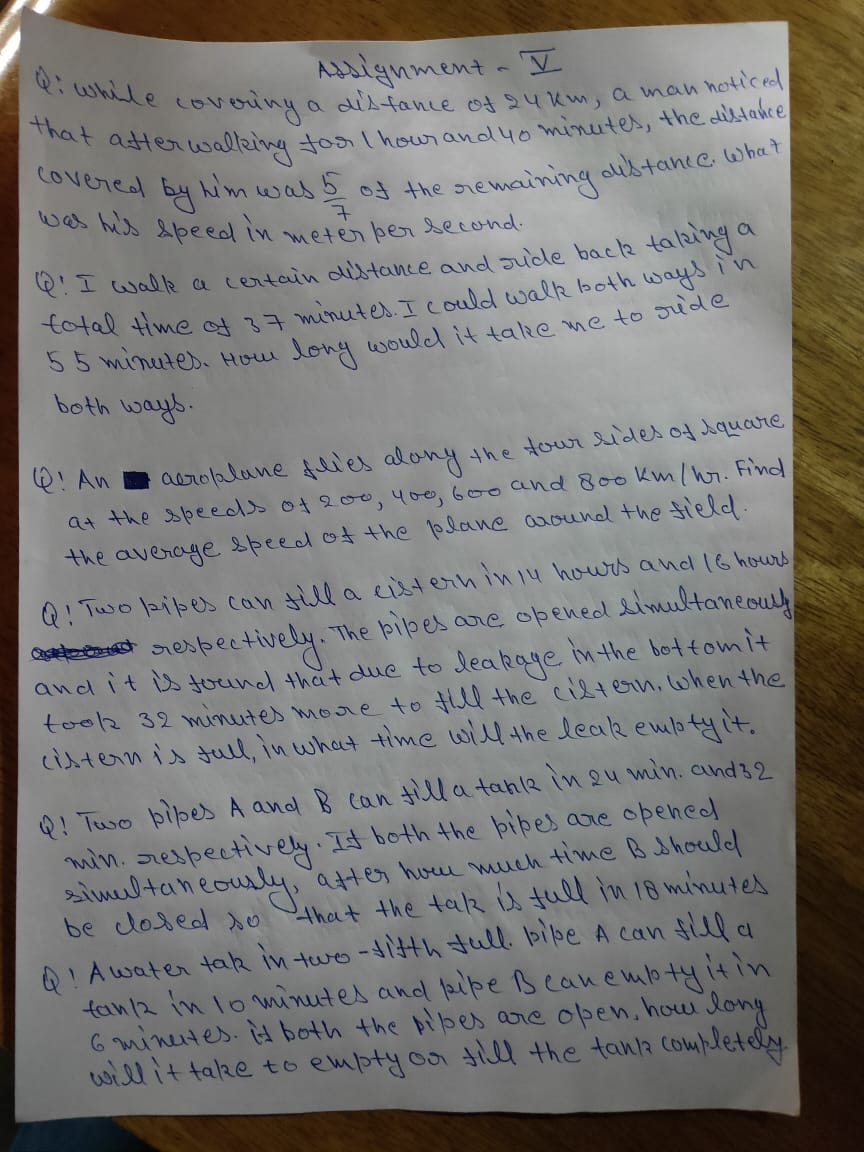 Assignment - V
Q: while covering a distance of 24 Km, a man noticed
that after walking for 1 hour and 40 minutes, the distance
covered by him was 5/7 of the remaining distance. What
was his speed in meter per second.
Q! I walk a certain distance and ride back taking a
total time of 37 minutes. I could walk both ways in
55 minutes. How long would it take me to ride
both ways.
Q! An aeroplane flies along the four sides of square
at the speeds of 200, 400, 600 and 800 Km/hr. Find
the average speed of the plane around the field.
Q! Two pipes can fill a cistern in 14 hours and 16 hours
respectively. The pipes are opened simultaneously
and it is found that due to leakage in the bottom it
took 32 minutes more to fill the cistern. When the
cistern is full, in what time will the leak empty it.
Q! Two pipes A and B can fill a tank in 24 min. and 32
min. respectively. If both the pipes are opened
simultaneously, after how much time B should
be closed so that the tak is full in 18 minutes
Q! A water tak in two-fifth full. pipe A can fill a
tank in 10 minutes and pipe B can empty it in
6 minutes. if both the pipes are open, how long
will it take to empty or fill the tank completely.